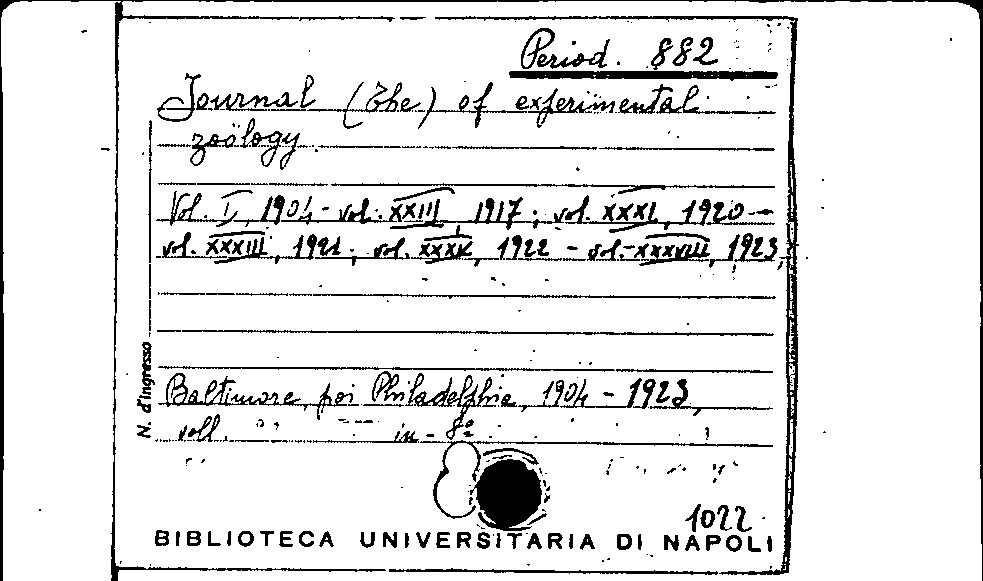 Period. 882
Journal (The) of experimental
zoölogy.
Vol. I, 1904 - vol. XXIII, 1917; vol. XXXI, 1920 -
vol. XXXIII, 1921; vol. XXXV, 1922 - vol. XXXVIII, 1923,
N. d'Ingresso
Baltimore, poi Philadelphia, 1904 - 1923,
voll. in - 8º
1022
BIBLIOTECA UNIVERSITARIA DI NAPOLI